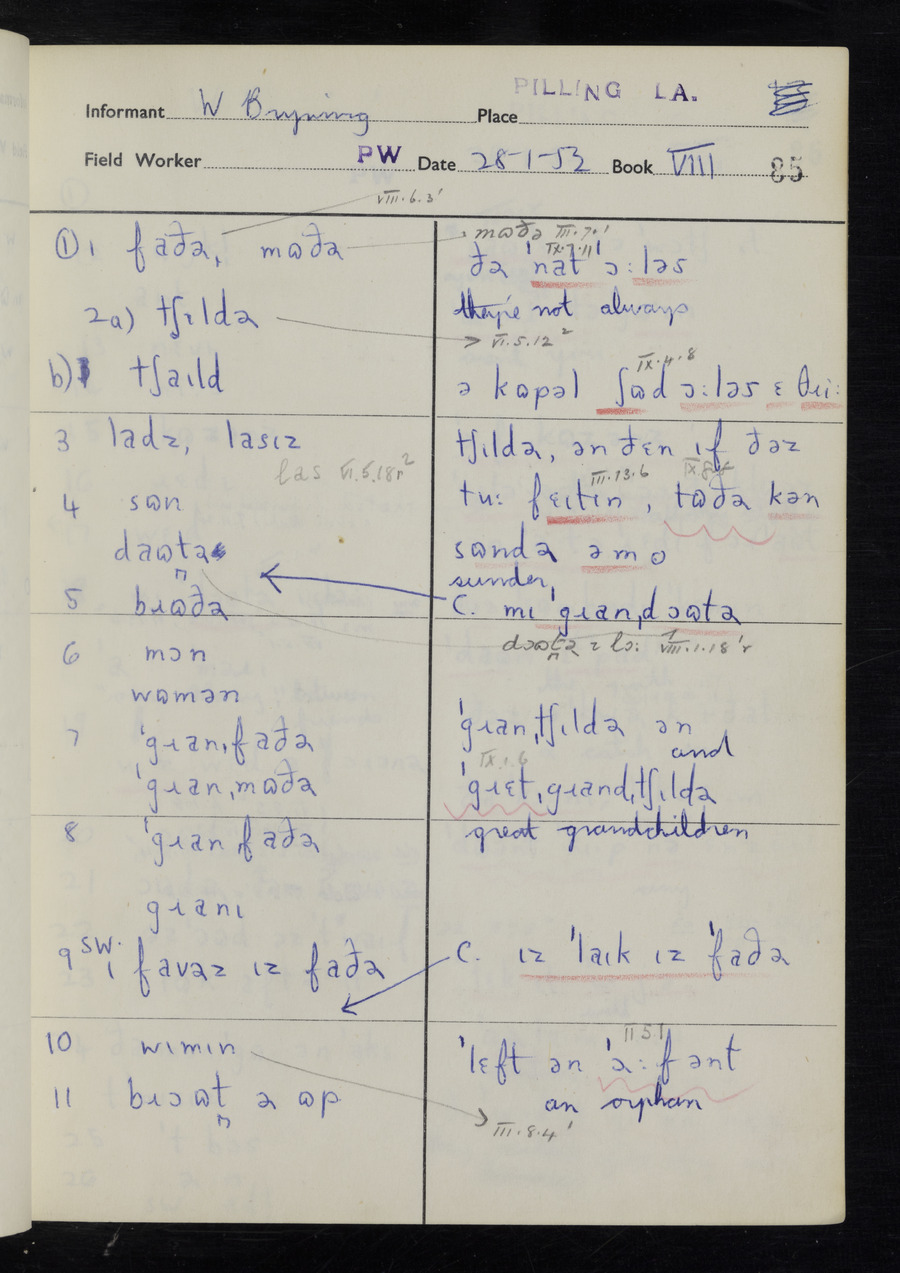 PILLING LA.
Informant W Bryning Place
Field Worker PW Date 28-1-53 Book VIII 85
VIII.6.3'
① 1 faðə, mɷðə
2a) tʃɪldə
b) tʃaɪld
3 ladz, lasɪz
las VI.5.18r²
4 sɷn
daɷtə
5 bɹɷðə
6 mɔn
wɷmən
7 'gɹanˌfaðə
'gɹanˌmɷðə
8 'gɹanˌfaðə
gɹanɪ
9 SW. ɪ favəz ɪz faðə
10 wɪmɪn
11 bɹɔɷt ə ɷp
mɷðə III.7.1
IX.7.11'
ðə 'nat 'ɔ:ləs
they're not always
VI.5.12²
IX.4.8
ə kɷpəl ʃɷd ɔ:ləs ɛ θɹi:
tʃɪldə, ən ðɛn ɪf ðəz
III.13.6
tu: fɛɪtɪn, tɷðə kən
sɷndə əm o
sunder
C. mɪ 'gɹanˌdɔɷtə
VIII.1.18'r
'gɹanˌtʃɪldə ən
and
IX.1.6
'gɹɛt,gɹandˌtʃɪldə
great grandchildren
C. ɪz 'laɪk ɪz 'faðə
II 5.1
'lɛft ən 'ɔ:fənt
an orphan
III.8.4'